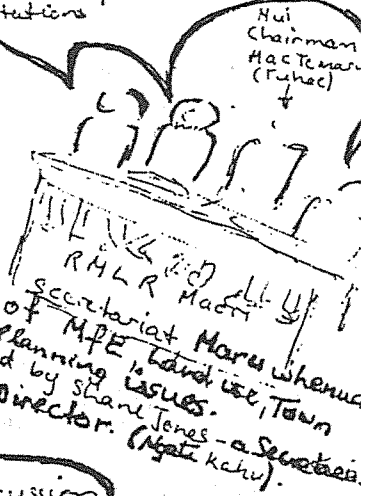 tations
Hui
Chairman
Mac Temara
(Tuhoe)
RMLR Maori
secretariat Maruwhenua
of MfE, Land use, Town
Planning issues.
d by Shane Jones - a Secretariat
Director. (Ngati Kahu).
cussion